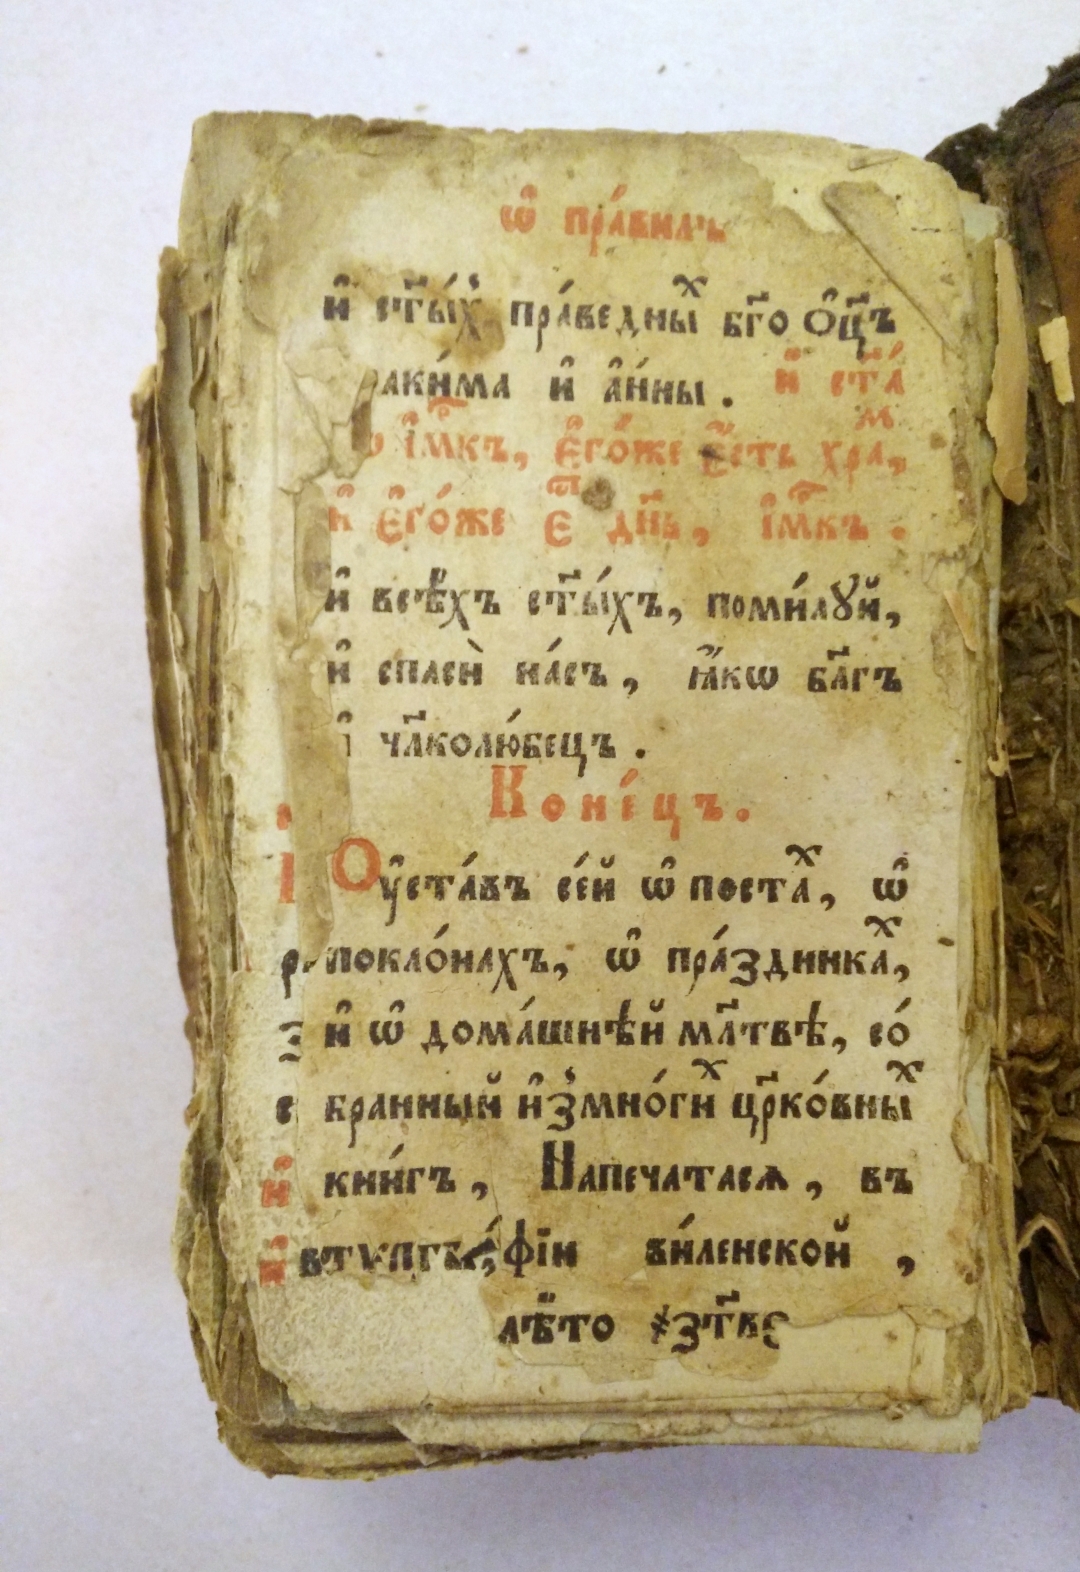 ѡ҆ пра́вилѣ
и҆ ст҃ы́хъ пра́ведныⷯ бг҃оѻ҆ц҃ъ
аки́ма и҆ а҆́нны. и҆ ст҃а́
і҆мⷬ҇къ, є҆го́же є҆́сть храⷨ,
и҆ є҆го́же є҆ⷭ҇ дн҃ь, і҆мⷬ҇къ.
и҆ всѣ́хъ ст҃ы́хъ, поми́лꙋй,
и҆ спасѝ на́съ, ꙗ҆́кѡ бл҃гъ
чл҃колю́бецъ.
Коне́цъ.
Оу҆ста́въ се́й ѡ҆ постаⷯ, ѡ҆
покло́нахъ, ѡ҆ пра́здникаⷯ,
и҆ ѡ҆ дома́шнѣй мл҃твѣ, со́
бранный и҆змно́гиⷯ цр҃ко́вныⷯ
кни́гъ, Напечатасѧ, въ
ви́ленской,
лѣ́то ҂зт҃